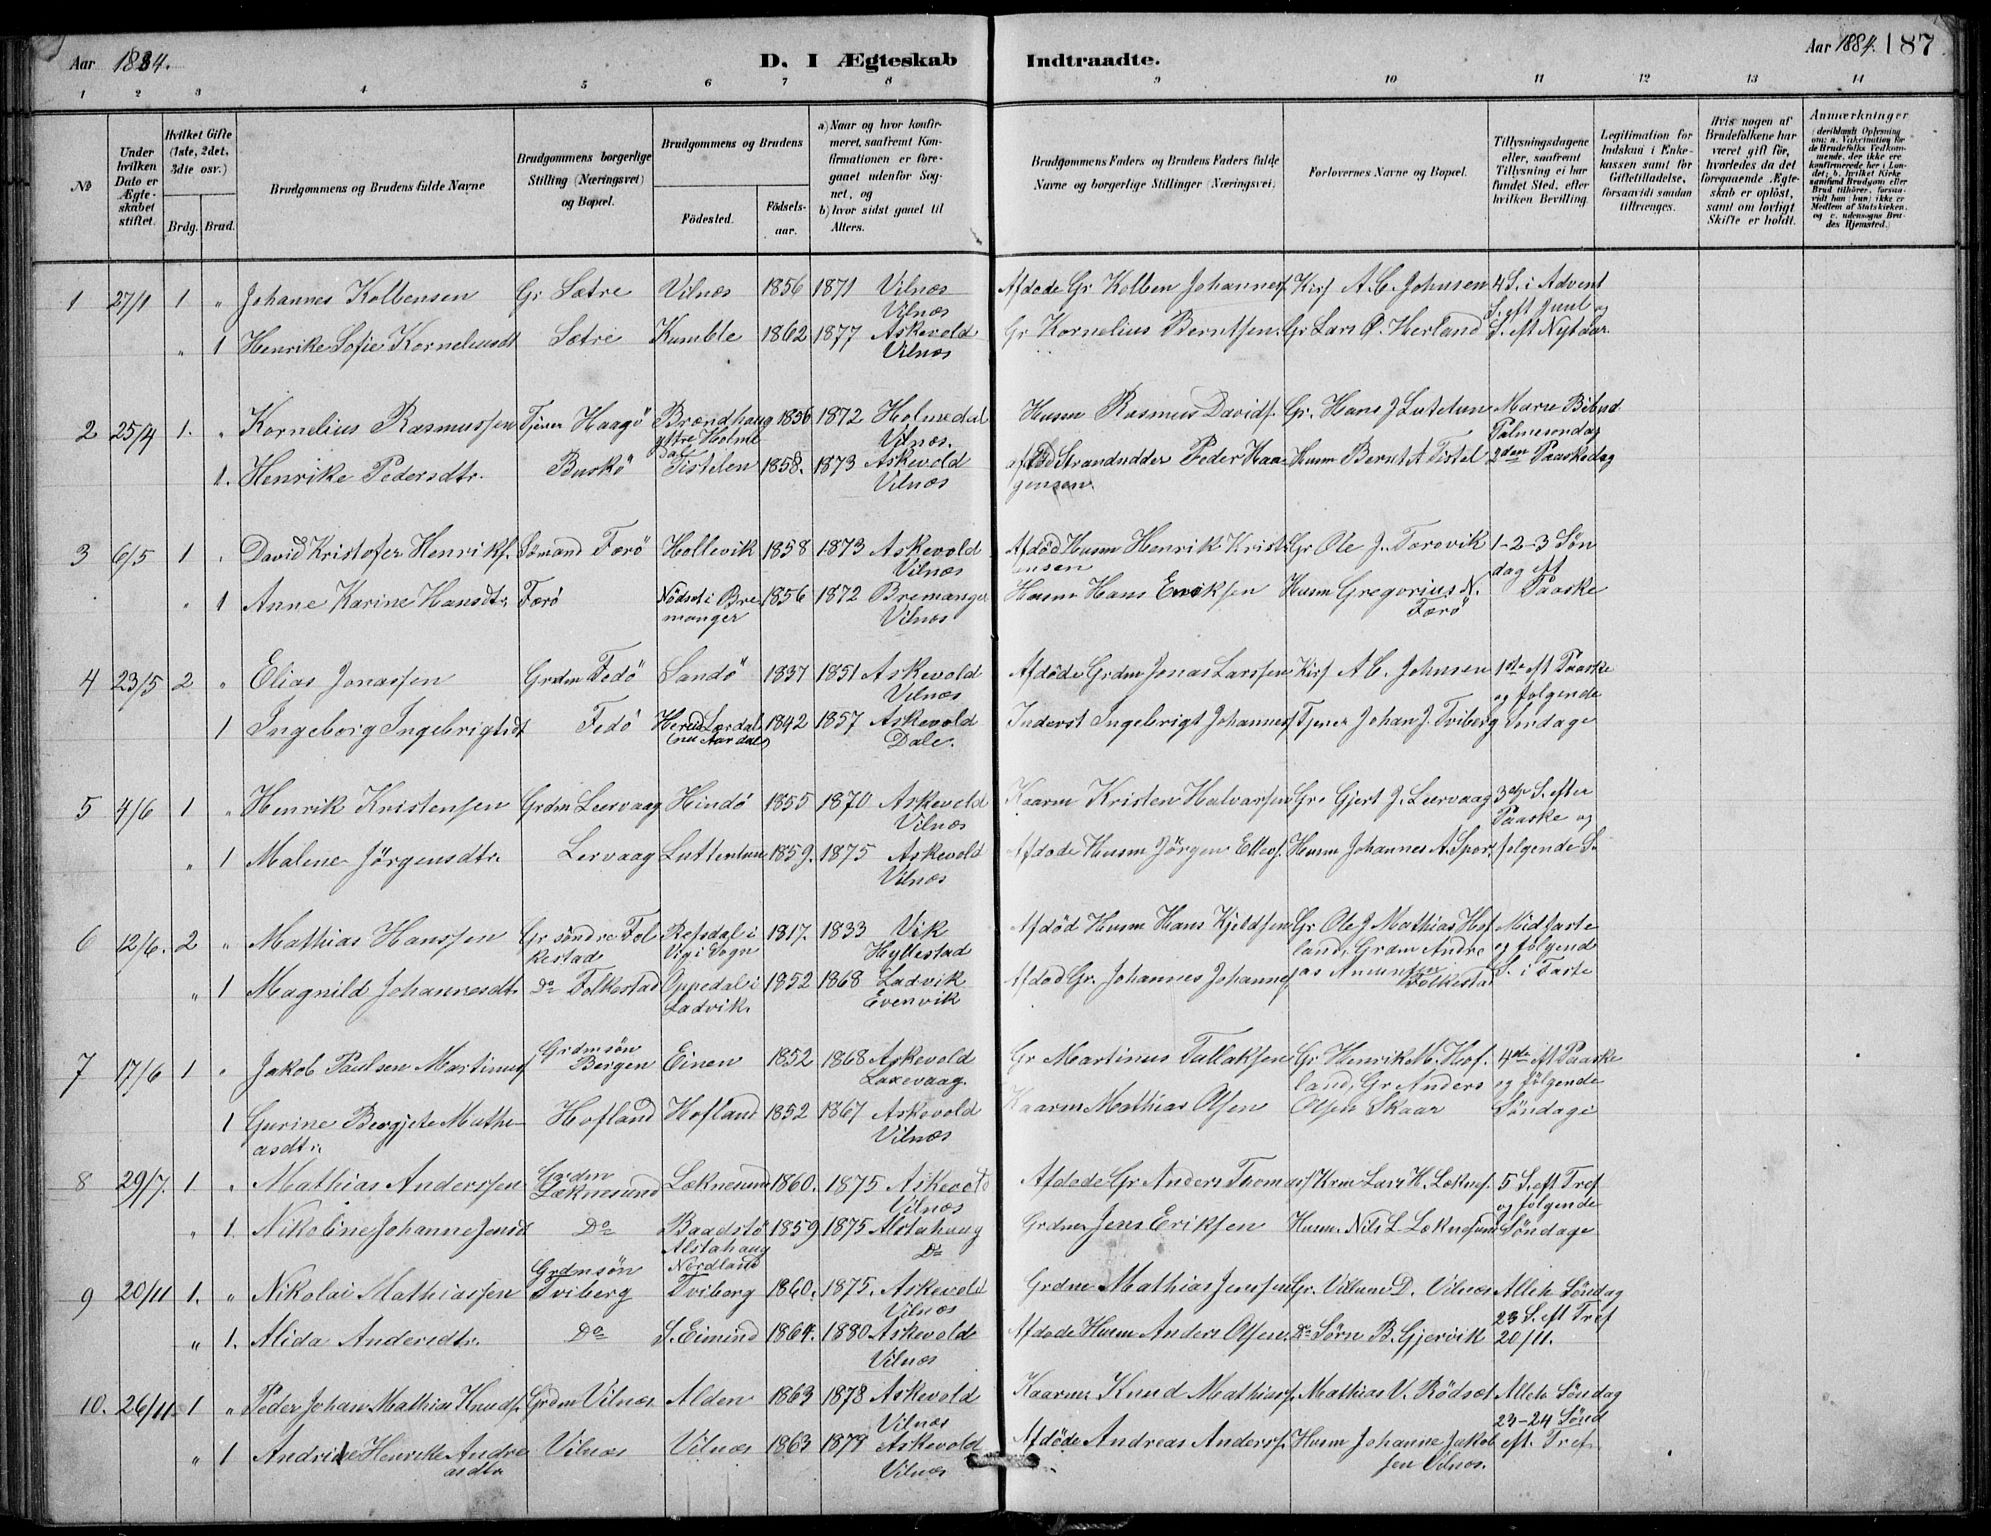 Aar 1884. D. I Ægteskab Indtraadte. Aar 1884. 187
1 2 3 4 5 6 7 8 9 10 11 12 13 14
No
Under hvilken Dato er Ægteskabet stiftet.
Hvilket Gifte (1ste, 2det, 3dte osv.)
Brdg. Brud.
Brudgommens og Brudens fulde Navne
Brudgommens borgerlige Stilling (Næringsvei) og Bopæl.
Brudgommens og Brudens
Födested. Födsels-aar.
a) Naar og hvor konfirmeret, saafremt Konfirmationen er foregaaet udenfor Sognet, og
b) hvor sidst gaaet til Alters.
Brudgommens Faders og Brudens Faders fulde Navne og borgerlige Stillinger (Næringsvei)
Forlovernes Navne og Bopæl.
Tillysningsdagene eller, saafremt Tillysning ei har fundet Sted, efter hvilken Bevilling.
Legitimation for Indskud i Enkekassen samt for Giftetilladelse, forsaavidt saadan tiltrænges.
Hvis nogen af Brudefolkene har været gift før, hvorledes da det foregaaende Ægteskab er oplöst, samt om lovligt Skifte er holdt.
Anmærkninger
(deriblandt Oplysning om: a. Vakcination for de Brudefolks Vedkommende, der ikke ere konfirmerede her i Landet; b. hvilket Kirkesamfund Brudgom eller Brud tilhörer, forsaavidt han (hun) ikke er Medlem af Statskirken, og c. udensogns Brudes Hjemsted.)
1 27/1 1 " Johannes Kolbensen Gr Sætre Vilnæs 1856 1871 Vilnæs Afdøde Gr Kolben Johannesf Kirs A. C. Johnsen 4 S. i Advent
Vilnæs S. eft Juul og
" 1 Henrike Sofie Korneliusdt Sætre Kumble 1862 1877 Askevold Gr Kornelius Berntsen Gr Lars O. Herland S. eft Nytaar
Vilnæs
2 25/4 1. " Kornelius Rasmussen Tjener Haagö Brændhaug 1856 1872 Holmedal Husm Rasmus Davidf. Gr. Hans J Lutelun Mariæ Bebud
ytre Holmedal Vilnæs. Palmesondag
1. Henrike Pedersdtr. Buskö Tistelen 1858. 1873 Askevold afdød Strandsidder Peder Haa Husm Bernt A Tistel 2den Paaskedag
Vilnæs gensen
3 6/5 1 " David Kristofer Henrikf. Sömand Færö Hollevik 1858 1873 Askevold Afdød Husm Henrik Krist Gr Ole J. Færovik 1-2-3 Søn
Vilnæs ensen dag eft
" 1 Anne Karine Hansdtr Færö Nödset i Bre 1856 1872 Bremanger Husm Hans Eriksen Husm Gregorius N. Paaske
manger Vilnæs Færö
4 23/5 2 " Elias Jonassen Grdm Fedö Sandö 1837 1851 Askevold Afdøde Grdm Jonas Larssen Kirs A. C. Johnsen 1ste eft Paaske
Vilnæs og følgende
1 Ingeborg Ingebrigtsdt Fedö Herad Lærdal 1842 1857 Askevold Inderst Ingebrigt Johannesf Tjener Johan J. Tviberg Søndage
(nu Aardal) Dale.
5 4/6 1 " Henrik Kristensen Grdm Leervaag Hindö 1855 1870 Askevold Kaarm Kristen Halvarsen Gr. Gjert J. Leervaag 3die S. efter
Vilnæs Paaske og
" 1 Malene Jörgensdtr. Lervaag Luttentun 1859. 1875 Askevold Afdøde Husm Jörgen Ellevf. Husm Johannes A. Spor. følgende S.
Vilnæs
6 12/6. 2 " Mathias Hanssen Gr søndre Fol Refsdal i 1817. 1833 Vik Afdød Husm Hans Kjeldsen Gr Ole J Mathias Hof Midfaste
kestad Vig i Sogn Hyllestad land, Grdm Andre og følgend
" 1 Magnild Johannesdt. Do Folkestad Oppedal i 1852 1868 Ladvik Afdød Gr. Johannes Johannesf as Amundsen S. i Faste
Ladvik. Evenvik Folkestad
7 17/6 1 " Jakob Paulsen Martinusf Grdmsøn Bergen Einen 1852 1868 Askevold Gr Martinus Tallaksen Gr Henrik M. Hof. 4de eft Paaske
Laxevaag. land, Gr Anders og følgende
1 Gurine Bergjete Mathe Hofland Hofland 1852 1867 Askevold Kaarm Mathias Olsen Olsen Skaar Søndage
asdtr. Vilnæs
8 29/7. 1 " Mathias Anderssen Grdm Læknesund Læknesund 1860. 1875 Askevold Afdøde Gr Anders Thomasf Krm Lars H. Læknes. 5 S. eft Tref
Vilnæs og følgende
" 1. Nikoline Johanne Jensd Do Baadstö 1859 1875 Alstahaug Grdm Jens Eriksen Husm. Nils L Læknesund Søndage
Alstahaug Nordland Do
9 20/11 1. " Nikolai Mathiassen Grdmsön Tviberg Tviberg 1860. 1875. Askevold Grdm Mathias Jenssen Gr. Villum D. Vilnæs Alleh Söndag
Vilnæs 23 S. eft Tref
" 1. Alida Andersdtr. Do S. Eimind 1864. 1880 Askevold Afdøde Husm Anders Olsen Do Sörn B. Gjervik 20/11.
Vilnæs
10. 26/11 1 " Peder Johan Mathias Knudf. Grdm Vilnæs Alden 1863 1878 Askevold Kaarm Knud Mathiasf. Mathias V. Rödset Alleh Söndag
Vilnæs 23-24 Sönd
" 1 Andrine Henrike Andre Vilnæs Vilnæs 1863 1879 Askevold Afdøde Andreas Anderss. Husm Johanne Jakob eft. Tref
asdtr Vilnæs sen Vilnæs.